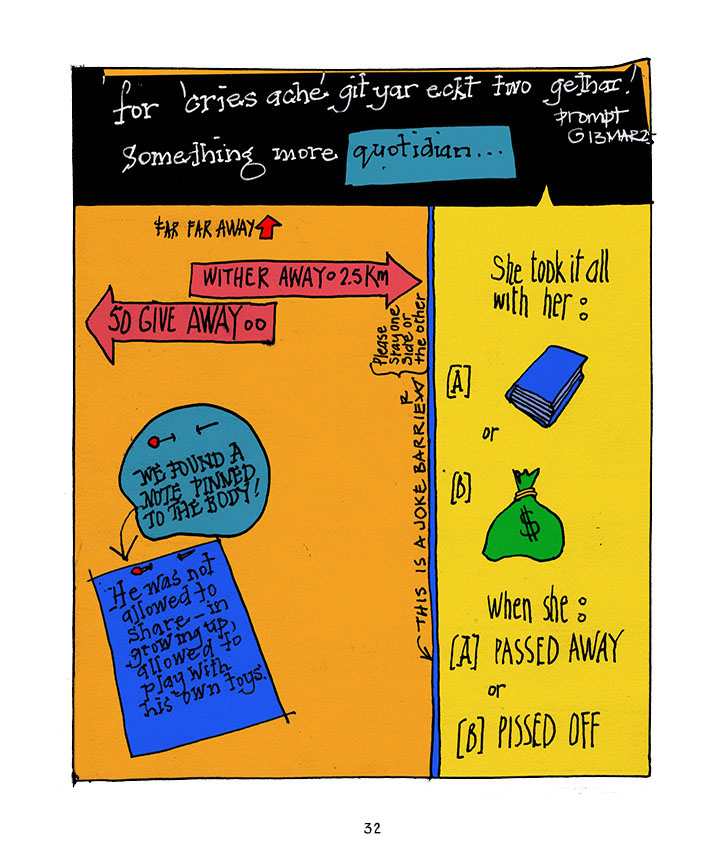 for 'cries ache' git yar eckt two gethar!
prompt
@ 13MAR25
something more quotidian...
FAR FAR AWAY
WITHER AWAY 25Km
50 GIVE AWAY
Please
stay one
side or
the other
THIS IS A JOKE BARRIER
WE FOUND A
NOTE PINNED
TO THE BODY!
"He was not
allowed to
share – in
growing up,
allowed to
play with
his own toys.
She took it all
with her:
[A]
or
[B]
$
when she:
[A] PASSED AWAY
or
[B] PISSED OFF
32